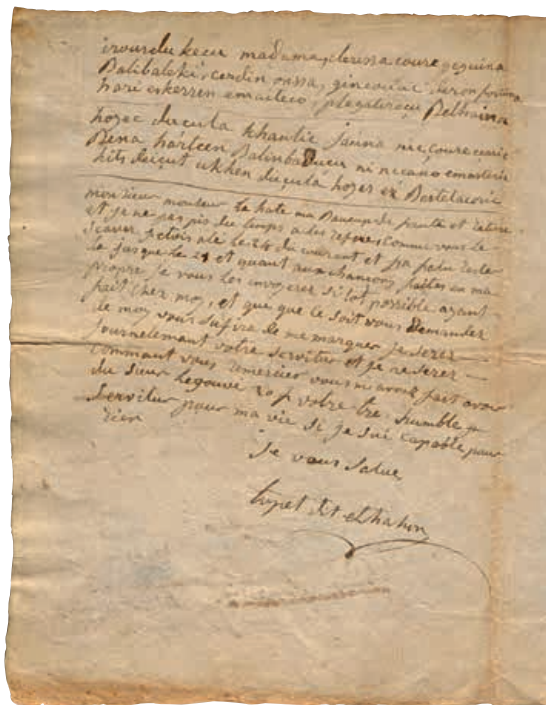 irourdu kecu madama, cerussa coure geguina
Balibaleki, cerdin ossa, gincoucac den on fortuna
hari eskerren emaiteco, plegaturaçu Belhaina
hozec duçula khantic jauna nic, coure
Bena harteen Balinbaducu ni niçano emasteric
hits duçut ukhen duçula hozer ez Bertelacoric
monsieur monleur te hate ma Baucup de faute et
et je ne pas pis du temps a les refere, comme vous le
scaver, j etois ale le 24 du courant et jia
jusque le 29 et quant aux chancons, faites en ma
propre, je vous les invoyerer si tot possible ayant
fait cher moy, et que que le soit vous demander
de moy vous sufira de me marquer je serez
journelemant votre servitur et je ne serez
commant vous remercier vous m avoir fait avoir
du sieur Legouvé 20 p votre tres humble
servitur pour ma vie si je sui capable pour
rien
Je vous salue,
topet dit etchahun